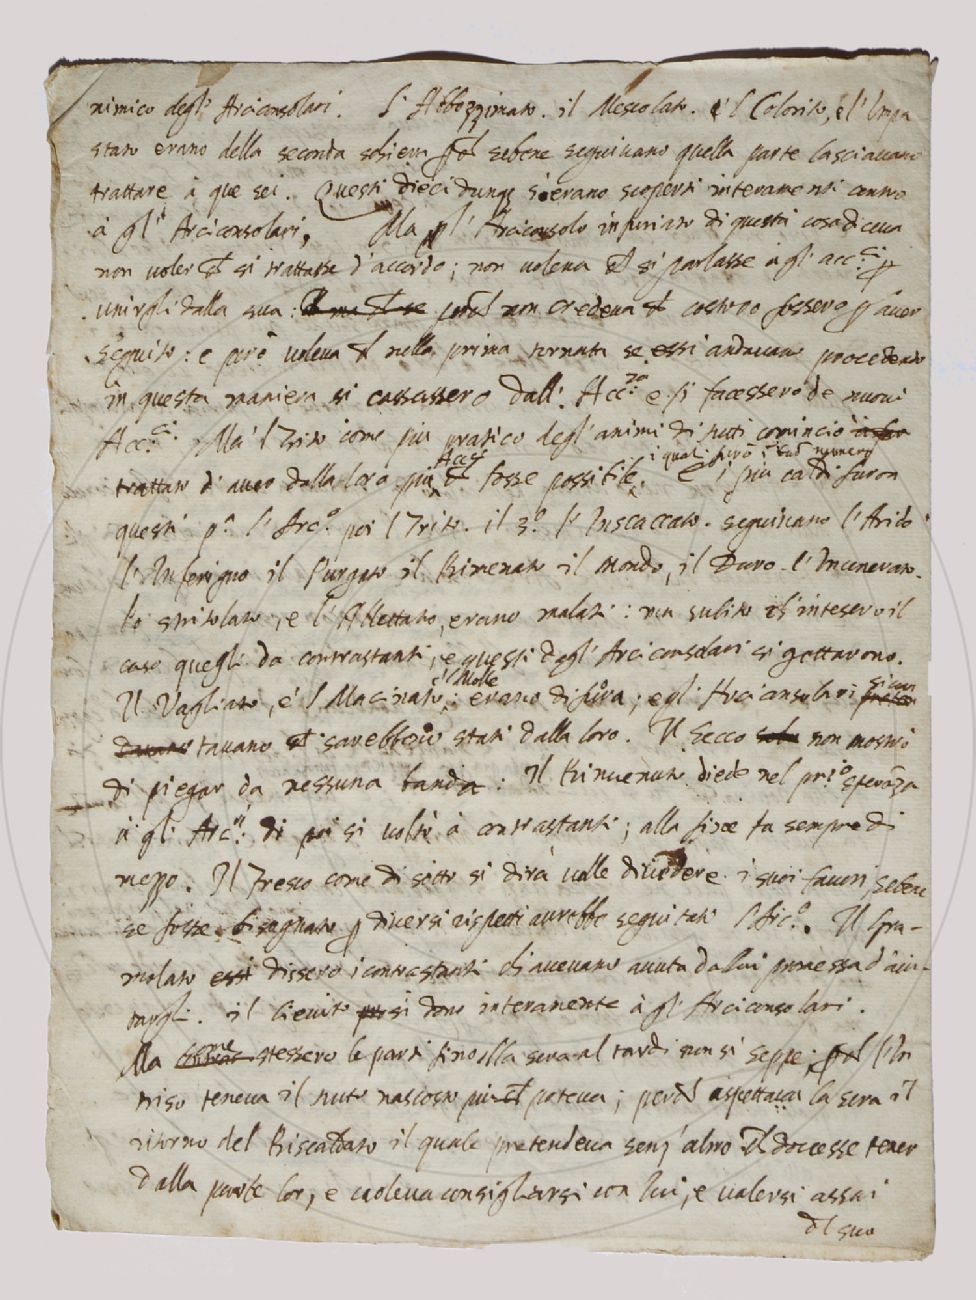 nimico degl' Arciconsolari. L'Abbozzimato. il Mescolato. e 'l Colorito, e l'Impa
stato erano della seconda schiera seben seguivano quella parte lasciavano
trattare à que sei. Questi dieci dunq s'erano scoperti interamenti contro
à gl' Arciconsolari, Ma l'Arciconsolo infuriato di questa cosa diceva
non voler si trattasse d'accordo; non voleva si parlasse à gl' acc.ci
unirgli dalla sua: non credeva costoro fossero aver
seguito: e però voleva nella prima tornata se essi andavano procedendo
in questa maniera si cassassero dall' Acc.za e si facessero de nuovi
Acc.ci Ma 'l Trito come più pratico degl'animi di tutti cominciò
trattato d'aver dalla loro più Acc.ci fosse possibile. i quali furo i più caldi furon
questi p.a l'Arc.o poi l Trito. il 3.o l'Insaccato. seguivano l'Arido
l'Inferigno il Purgato il Rimenato il Mondo, il Duro. l'Incenerato.
lo stritolato, e l'Allettato, erano malati: ma subito ch'intesero il
caso quegli da contrastanti, e questi dagl' Arciconsolari si gettarono.
Il Vagliato, e 'l Macinato, e 'l Molle: erano di fuora; e gl' Arciconsolari si van
tavano sarebbono stati dalla loro. Il Secco non mostrò
di piegar da nessuna banda: Il Rinvenuto diede nel pri.o speranza
à gli Arc.ri di poi si voltò à contrastanti; alla fine fa sempre di
mezzo. Il Fresco come di sotto si dirà volle dividere i suoi favori sebene
se fosse bisognato diversi rispetti avrebbe seguitati l'Arc.o. Il Gra-
molato dissero i contrastanti ch'avevano avuta da lui promessa d'aiu-
targli. il Lievito si dono interamente à gl' Arciconsolari.
Ma come stessero le parti fino alla sera al tardi non si seppe; l'In
triso teneva il tutto nascosto più poteva; aspettava la sera il
ritorno del Riscaldato il quale pretendeva senz'altro dovesse tener
dalla parte lor, e voleva consigliarsi con lui, e valersi assai
del suo